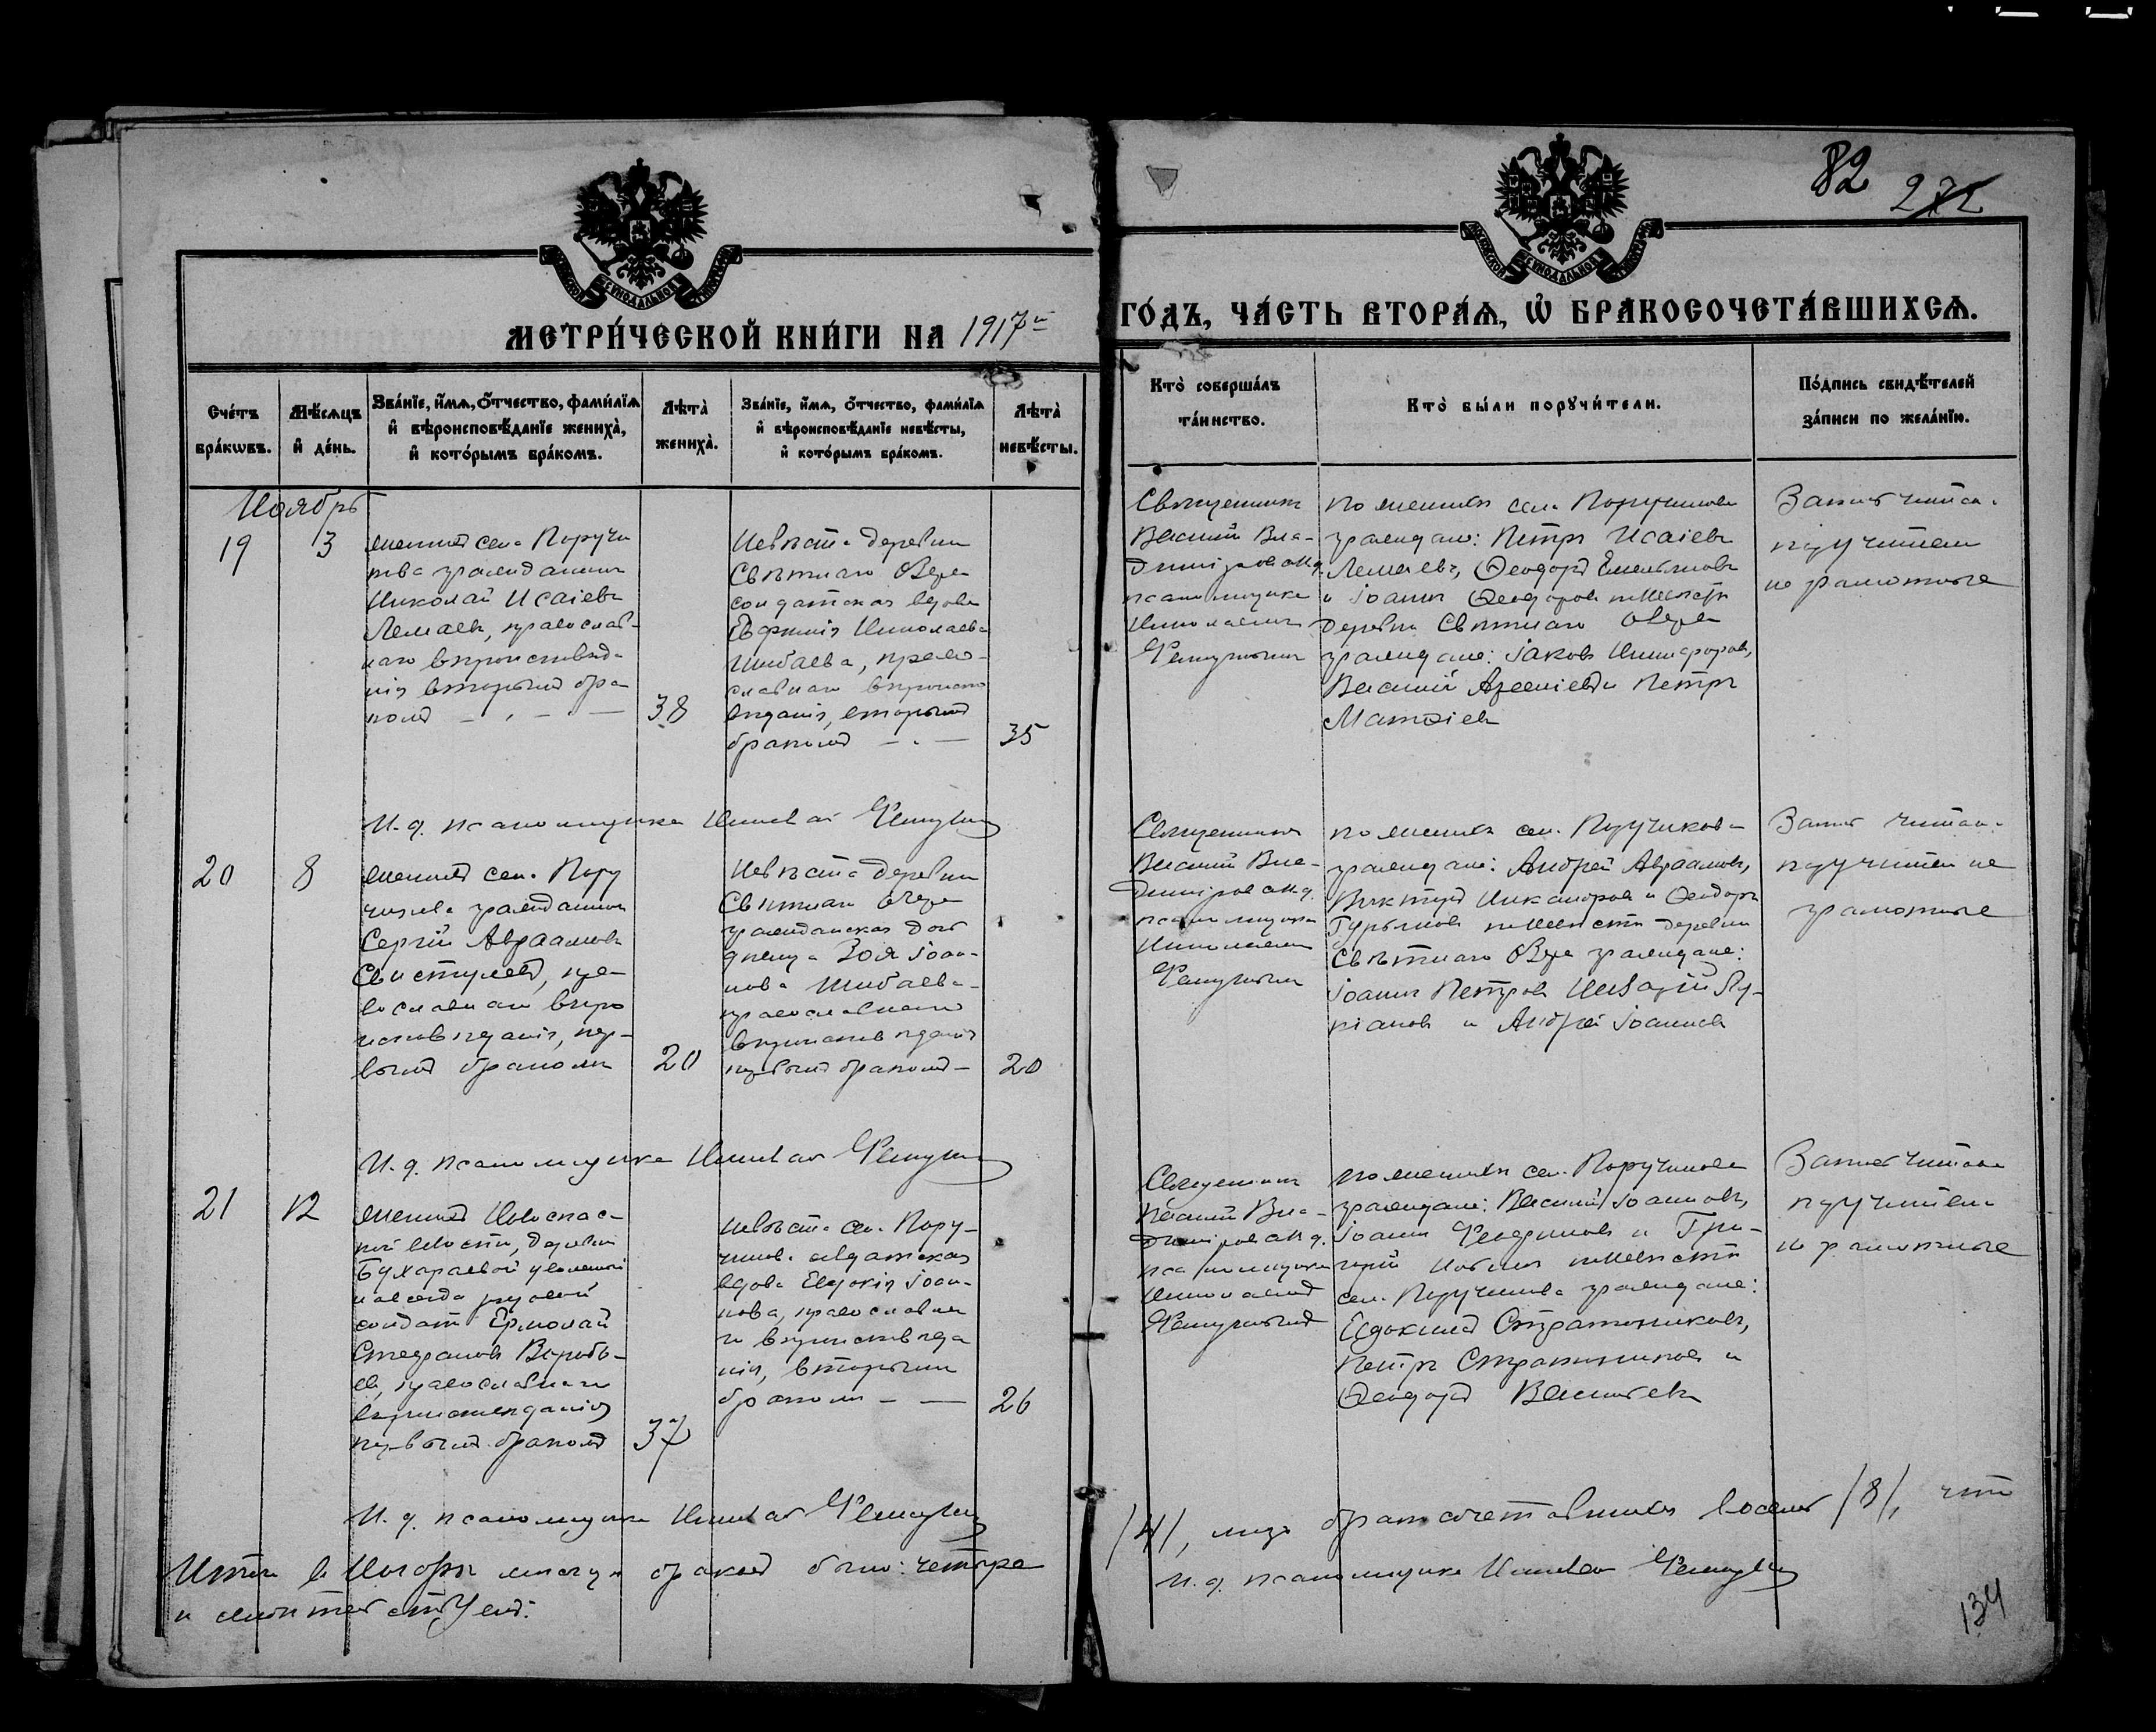 82 272
МЕТРИ́ЧЕСКОЙ КНИ́ГИ НА 1917й
ГО́ДЪ, ЧА́СТЬ ВТОРА́Ѧ, Ѽ БРАКОСОЧЕТА́ВШИХСѦ.
Сче́тъ бра́кѡвъ.
Мѣ́сѧцъ и҆ де́нь.
Зва́нїе, и҆́мѧ, ѻ҆́тчество, фами́лїѧ
и҆ вѣроисповѣ́данїе жениха̀,
и҆ кото́рымъ бра́комъ.
Лѣта̀ жениха̀.
Зва́нїе, и҆́мѧ, ѻ҆́тчество, фами́лїѧ
и҆ вѣроисповѣ́данїе невѣ́сты,
и҆ кото́рымъ бра́комъ.
Лѣта̀ невѣ́сты.
Кто̀ соверша́лъ
та́инство.
Кто̀ бы́ли порꙋчи́тели.
По́дпись свидѣ́телей
за́писи по жела́нїю.
Ноябрь
19
3
Женихъ села Поручи
кова гражданинъ
Николай Исаіевъ
Лемаевъ, православ-
наго вѣроисповѣда-
нія вторымъ бра
комъ
38
Невѣста деревни
Свѣтлаго Озера
солдатская вдова
Евфимія Николаева
Шибаева, право-
славнаго вѣроиспо
вѣданія, вторымъ
бракомъ
35
Священникъ
Василій Вла-
диміровъ и.д.
псаломщика
Николай
по женихѣ села Поручикова
граждане: Петръ Исаіевъ
Лемаевъ, Ѳеодоръ Емельяновъ
и Іоаннъ Ѳеодоровъ по невѣстѣ
деревни Свѣтлаго Озера
граждане: Іаковъ Никифоровъ,
Василій Алексіевъ и Петръ
Матѳіевъ
Запись читана.
поручители
неграмотные
И. д. псаломщика Николай
20
8
Женихъ села Пору
чикова гражданинъ
Сергій Авраамовъ
Свистуновъ, пра-
вославнаго вѣро
исповѣданія, пер-
вымъ бракомъ
20
Невѣста деревни
Свѣтлаго Озера
гражданская дочь
дѣвица Зоя Іоан-
нова Шибаева
православнаго
вѣроисповѣданія
первымъ бракомъ
20
Священникъ
Василій Вла-
диміровъ и.д.
псаломщика
Николай
по женихѣ села Поручикова
граждане: Андрей Авраамовъ,
Викторъ Никаноровъ и Ѳеодоръ
Гурьяновъ по невѣстѣ деревни
Свѣтлаго Озера граждане:
Іоаннъ Петровъ
и Андрей Іоанновъ
Запись читана.
поручители не
грамотные
И. д. псаломщика Николай
21
12
Женихъ Новоспас-
кой волости, деревни
Бухараевой уволенный
навсегда рядовой
солдатъ Ермолай
Стефановъ Воробь-
евъ, православнаго
вѣроисповѣданія
первымъ бракомъ
37
Невѣста села Пору-
чикова солдатская
вдова Евдокія Іоан-
нова, православна
го вѣроисповѣда
нія, вторымъ
бракомъ
26
Священникъ
Василій Вла-
диміровъ и.д.
псаломщика
Николай
по женихѣ села Поручикова
граждане: Василій Іоанновъ,
Іоаннъ и Гри-
горій по невѣстѣ
села Поручикова граждане:
Евдокимъ Стратониковъ,
Петръ Стратониковъ и
Ѳеодоръ Васильевъ
Запись читана
поручители
неграмотные
И. д. псаломщика Николай
Итого въ Ноябрѣ мѣсяцѣ браковъ было: четыре
/4/, лицъ бракосочетавшихся восемь /8/, что
и свидѣтельствуемъ:
И. д. псаломщика Николай
134